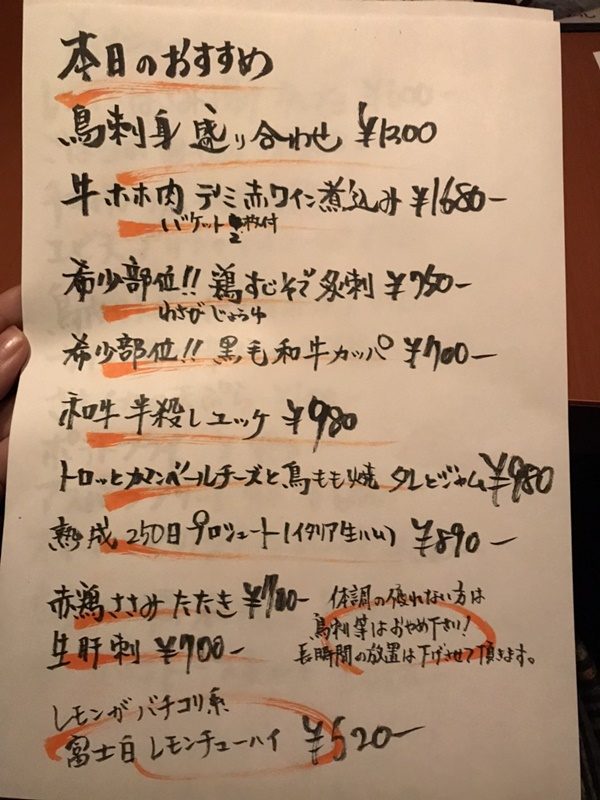 本日のおすすめ
鳥刺身盛り合わせ ¥1300
牛ホホ肉 デミ赤ワイン煮込み ¥1680-
バケット2枚付
希少部位!! 鶏すじそで炙刺 ¥750-
わさびじょうゆ
希少部位!! 黒毛和牛カッパ ¥700-
和牛半殺しユッケ ¥980
トロッとカマンベールチーズと鳥もも焼 タレとジャム ¥980
熟成250日プロシュート(イタリア生ハム) ¥890-
赤鶏ささみたたき ¥700-
生肝刺 ¥700-
体調の優れない方は
鳥刺等はおやめ下さい!
長時間の放置は下げさせて頂きます。
レモンがバチコリ系
富士白レモンチューハイ ¥520-